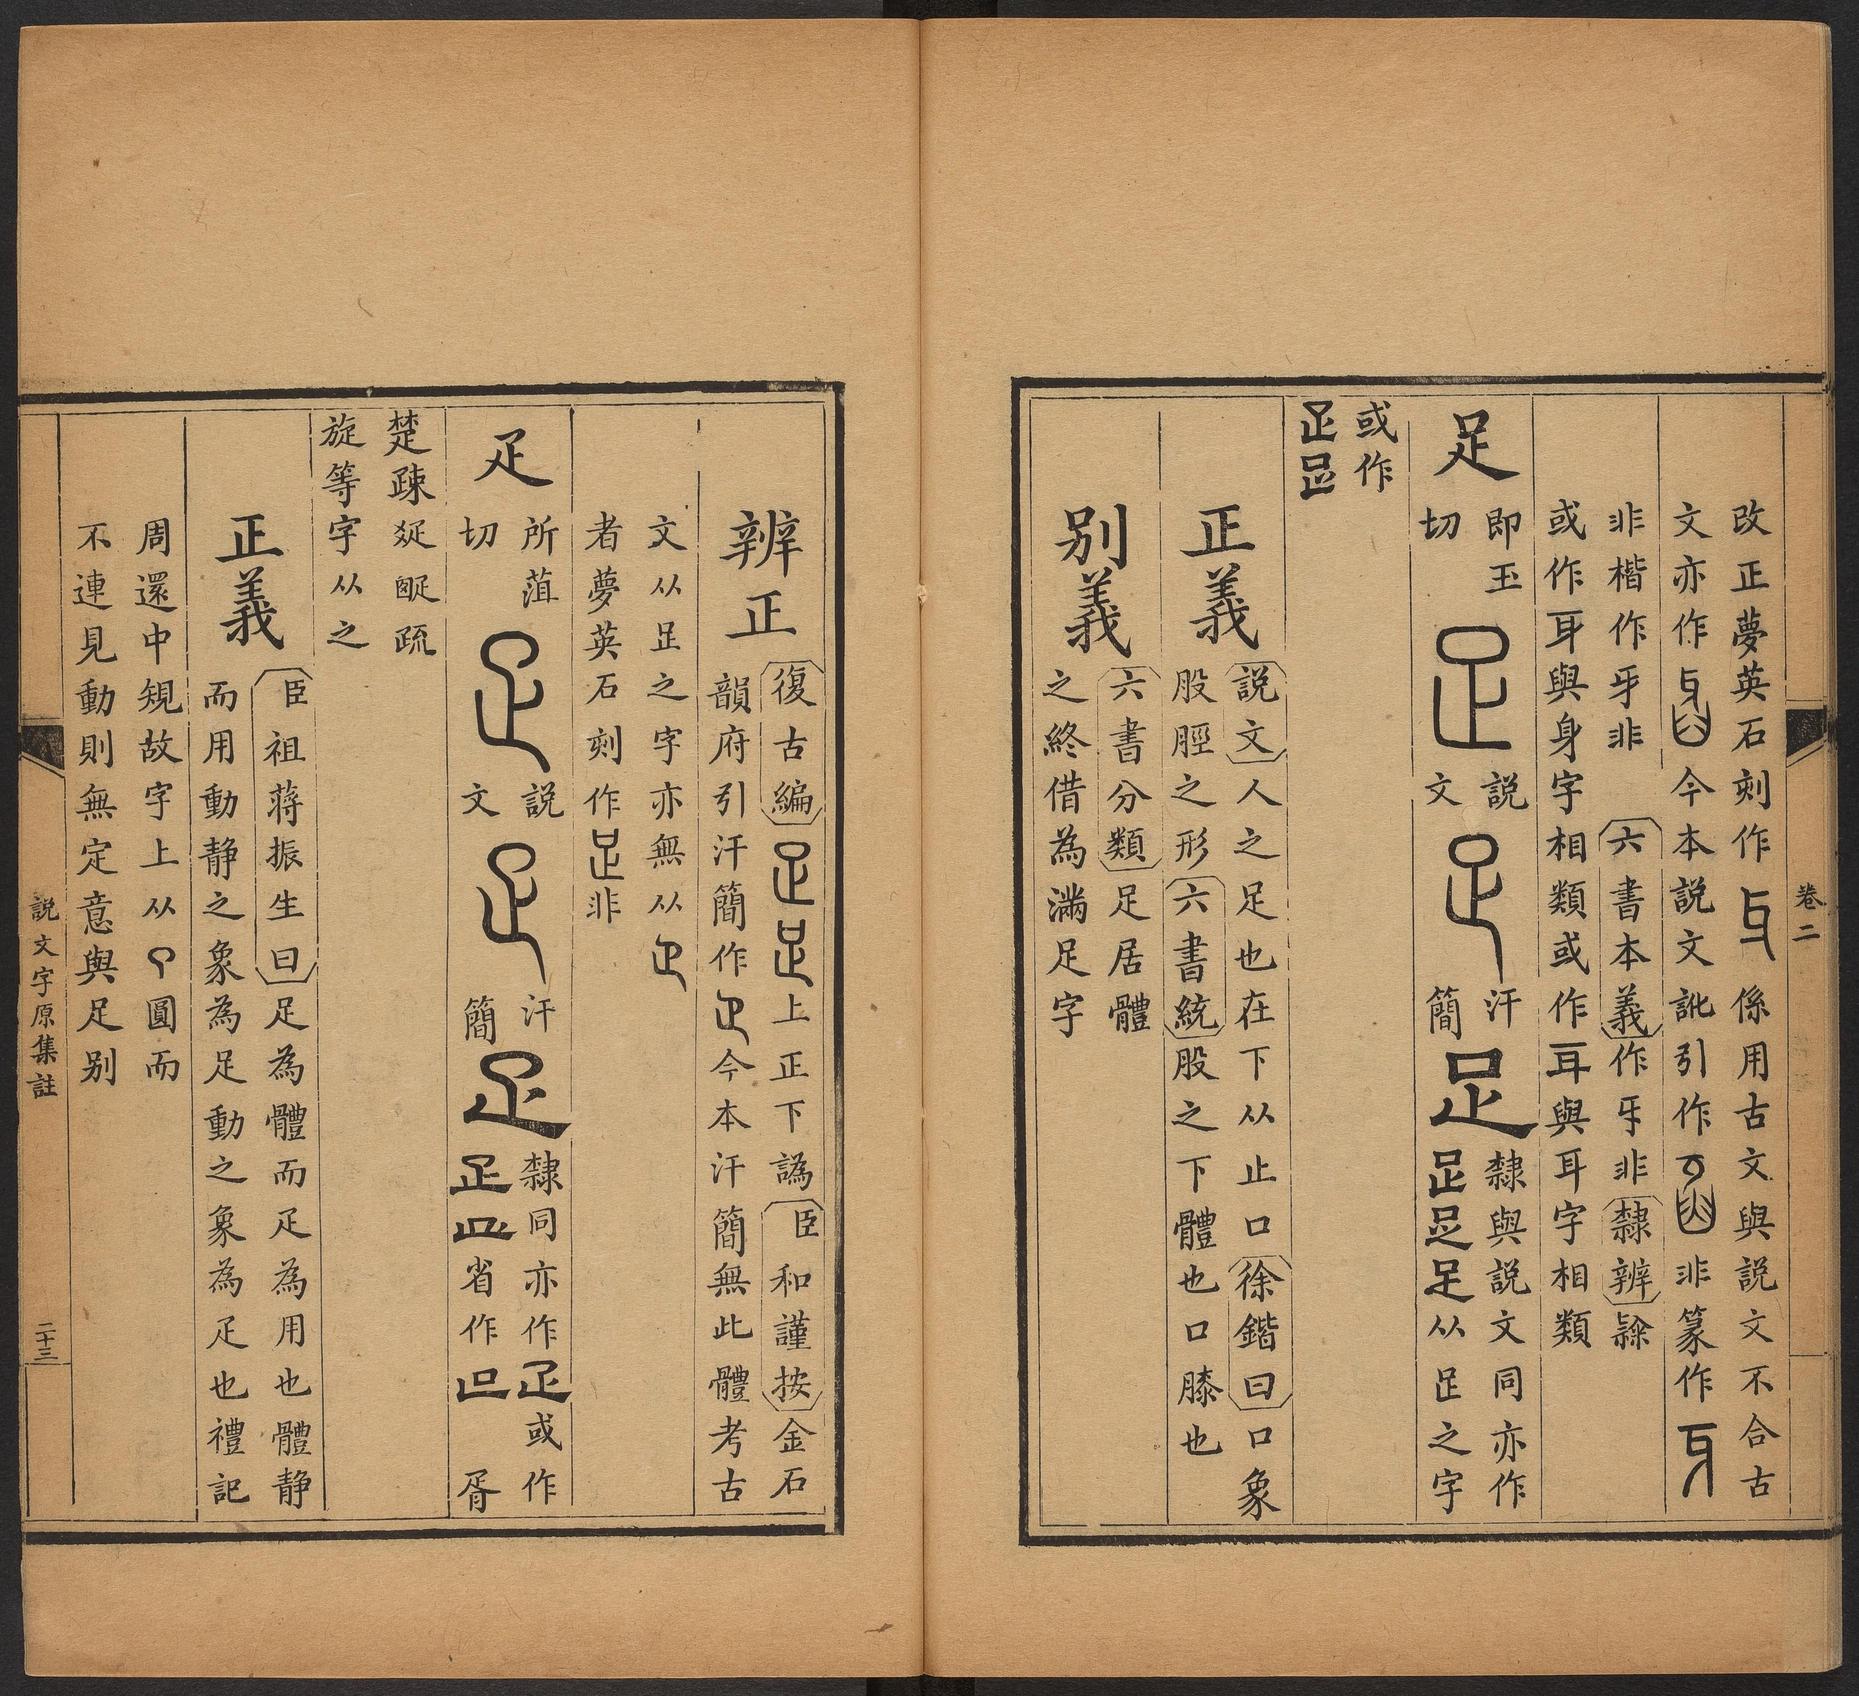 卷二
改正夢英石刻作係用古文與説文不合古
文亦作今本説文訛引作非篆作
非楷作牙非六書本義作牙非隸辨隸
或作耳與身字相類或作耳與耳字相類
足
即玉
切
説
文
汗
簡
隸與説文同亦作
从足之字
或作
正義
説文人之足也在下从止口徐鍇曰口象
股脛之形六書統股之下體也口膝也
别義
六書分類足居體
之終借為滿足字
辨正
復古編上正下譌臣和謹按金石
韻府引汗簡作今本汗簡無此體考古
文从足之字亦無从
者夢英石刻作非
疋
所菹
切
説
文
汗
簡
隸同亦作或作
省作胥
楚疎疏
旋等字从之
正義
臣祖蔣振生曰足為體而疋為用也體静
而用動静之象為足動之象為疋也禮記
周還中規故字上从圓而
不連見動則無定意與足别
説文字原集註
二十三